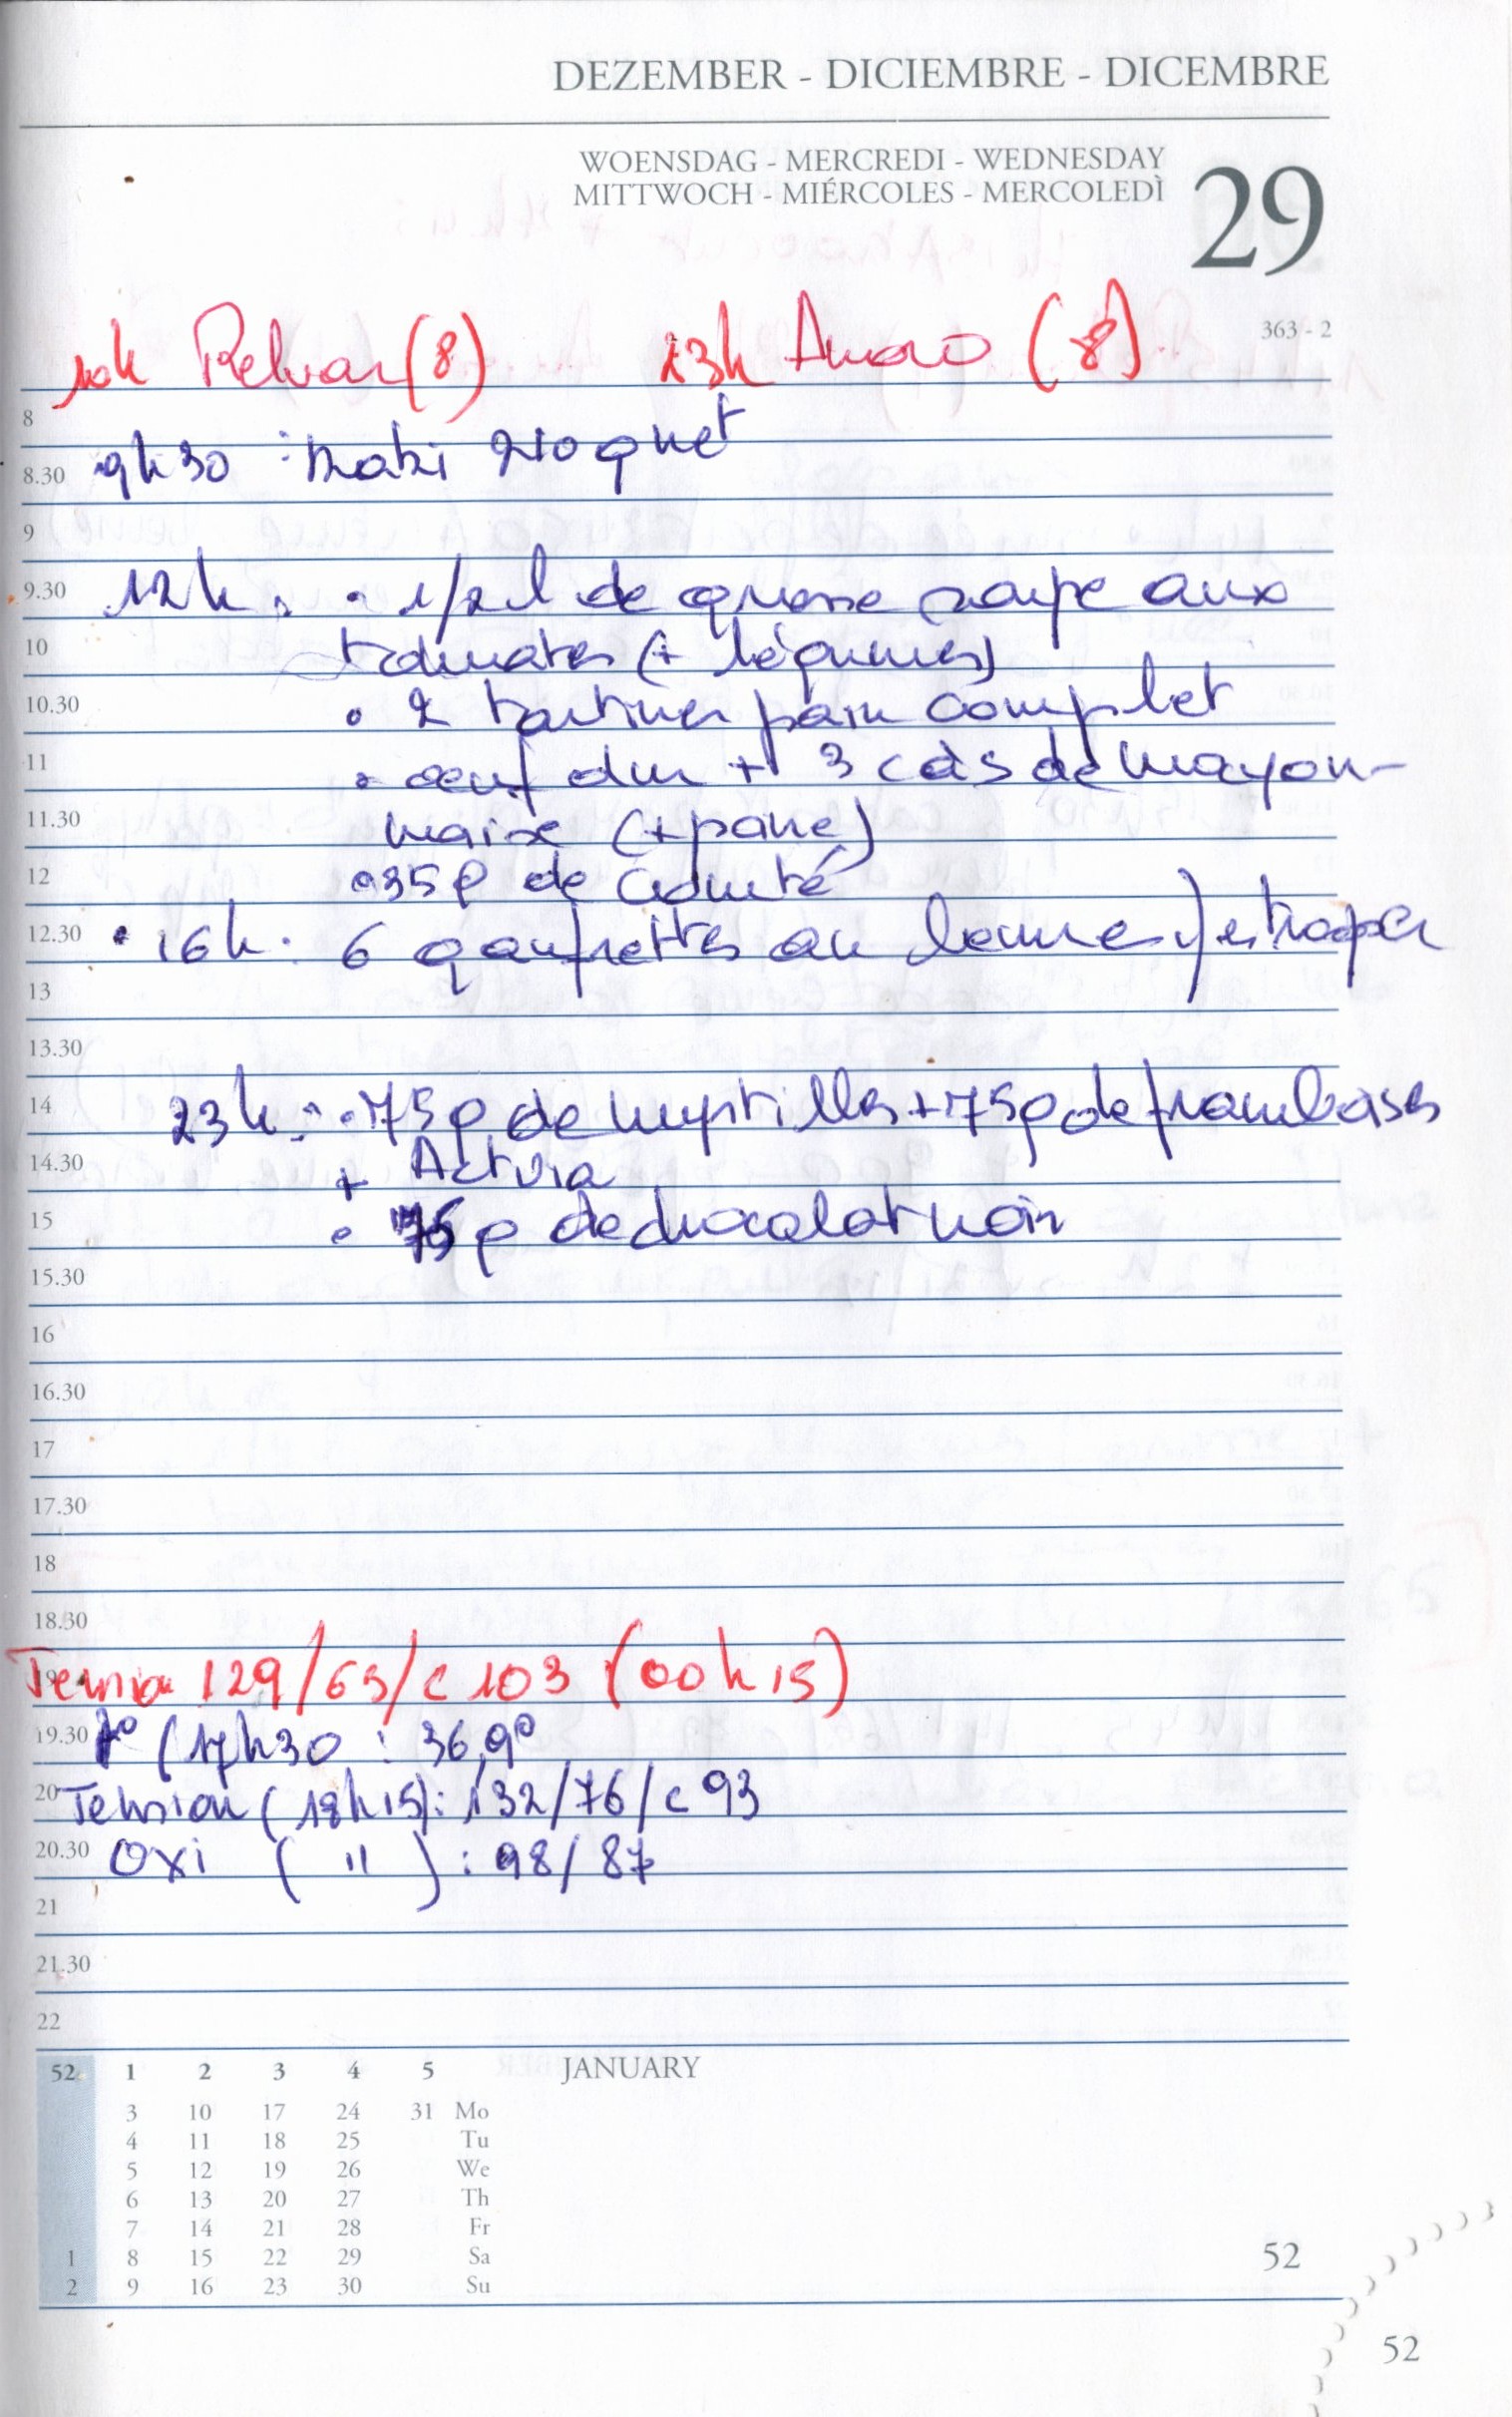 DEZEMBER - DICIEMBRE - DICEMBRE
WOENSDAG - MERCREDI - WEDNESDAY
MITTWOCH - MIÉRCOLES - MERCOLEDÌ
29
363 - 2
10h Relvar (8) 23h Amaro (8)
8
8.30 9h30 : Maki
9
9.30 12h : • 1/2 l de grosse soupe aux
10 tomates (+ légumes)
10.30 • 2 tartines pain complet
11 • oeuf dur + 3 càs de mayon-
11.30 naise (+ pane)
12 • 35 g de comté
12.30 • 16h : 6 gaufrettes au
13
13.30
14 23h : • 75 g de myrtilles + 75 g de framboises
14.30 + Activia
15 • 75 g de chocolat noir
15.30
16
16.30
17
17.30
18
18.30
19 Tension 129/65/c 103 (00h15)
19.30 T° (17h30 : 36,9°
20 Tension (18h15) : 132/76/c 93
20.30 Oxi ( " ) : 98/87
21
21.30
22
52 1 2 3 4 5 JANUARY
3 10 17 24 31 Mo
4 11 18 25 Tu
5 12 19 26 We
6 13 20 27 Th
7 14 21 28 Fr
1 8 15 22 29 Sa
2 9 16 23 30 Su
52
52